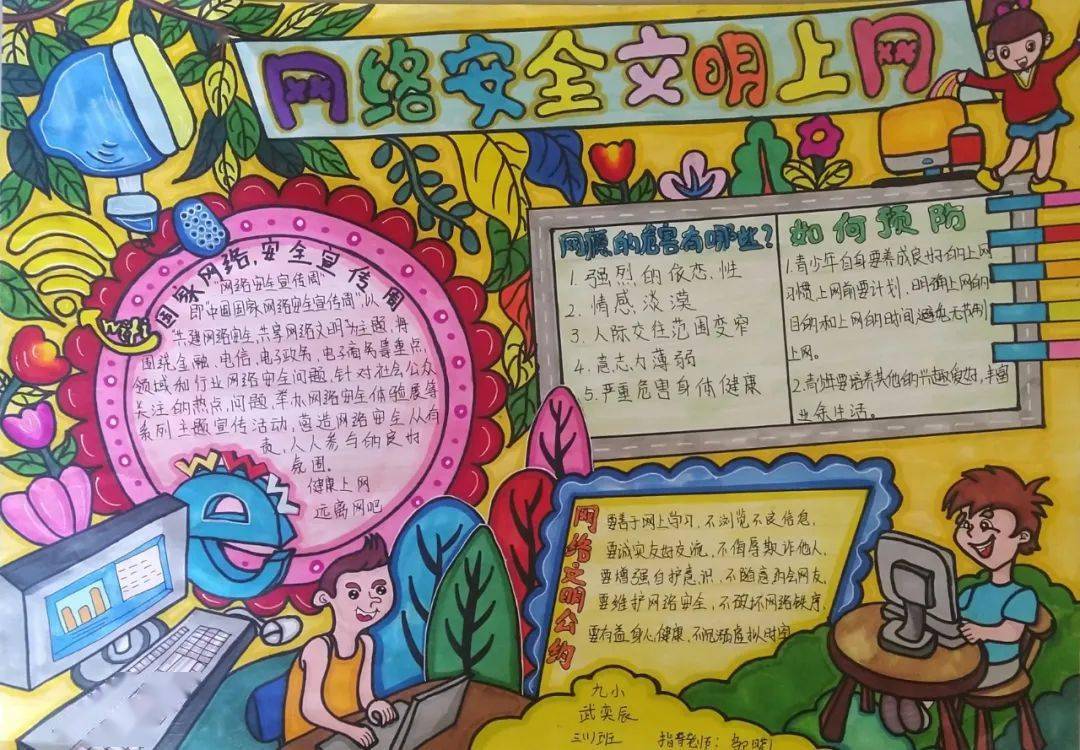 网络安全文明上网
国家网络安全宣传周
"网络安全宣传周"
即"中国国家网络安全宣传周",以
"共建网络安全,共享网络文明"为主题,将
围绕金融、电信、电子政务、电子商务等重点
领域和行业网络安全问题,针对社会公众
关注的热点,问题,举办网络安全体验展等
系列主题宣传活动,营造网络安全人人有
责,人人参与的良好
氛围。
健康上网
远离网吧
www
e
网瘾的危害有哪些?
1.强烈的依恋性
2.情感淡漠
3.人际交往范围变窄
4.意志力薄弱
5.严重危害身体健康
如何预防
1.青少年自身要养成良好的上网
习惯上网前要计划,明确上网的
目的和上网的时间,避免无节制
上网。
2.青少年要培养其他的兴趣爱好,丰富
业余生活。
网络文明公约
要善于网上学习,不浏览不良信息,
要诚实友好交流,不侮辱欺诈他人,
要增强自护意识,不随意约会网友,
要维护网络安全,不破坏网络秩序,
要有益身心健康,不沉溺虚拟时空
九小
武奕辰
三(1)班
指导老师: